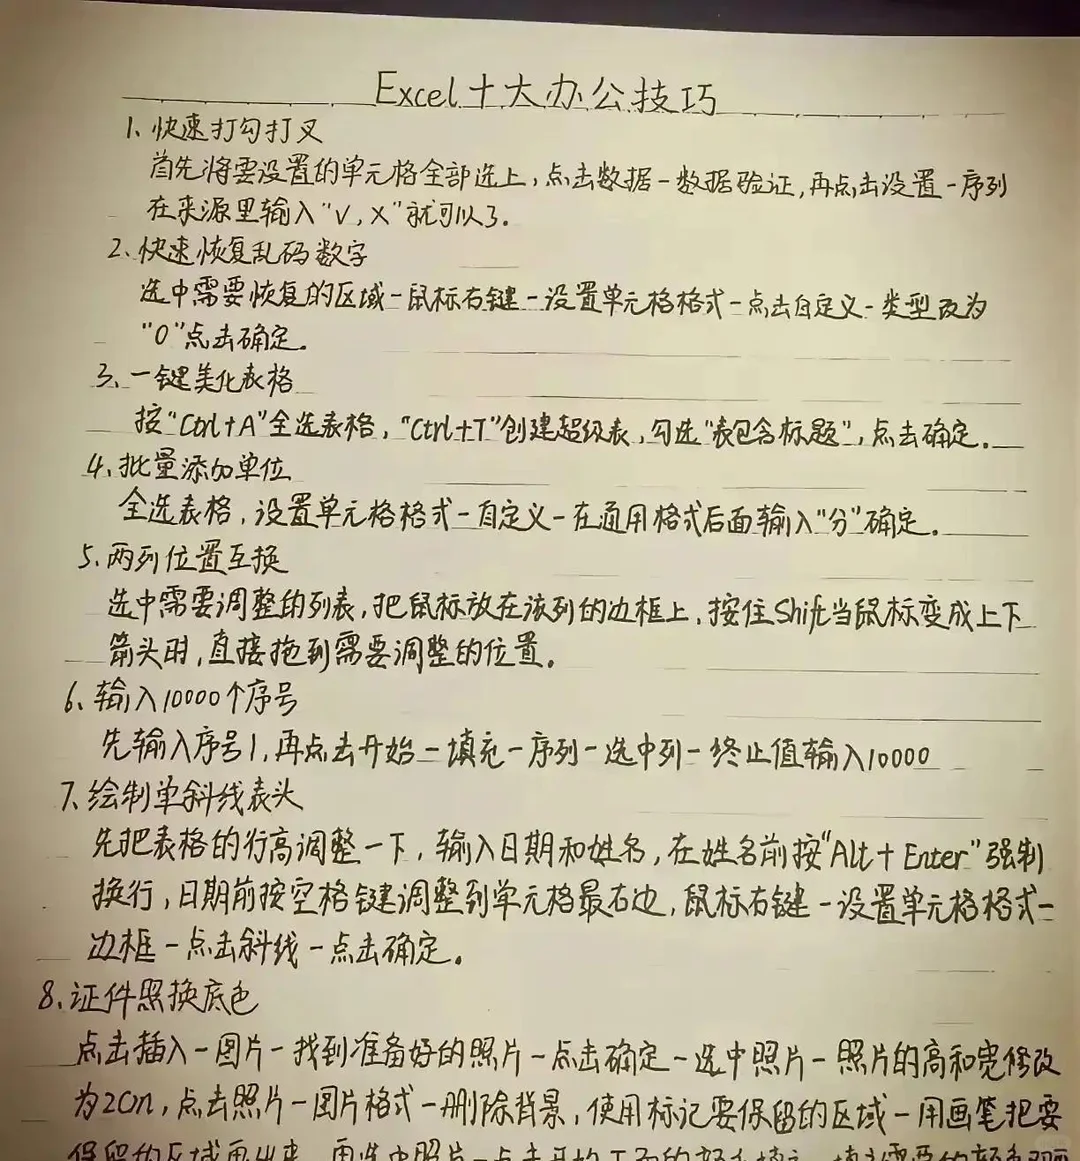 Excel十大办公技巧
1、快速打勾打叉
首先将需设置的单元格全部选上，点击数据-数据验证，再点击设置-序列
在来源里输入“√，×”就可以了.
2、快速恢复乱码数字
选中需要恢复的区域-鼠标右键-设置单元格格式-点击自定义-类型改为
“0”点击确定。
3、一键美化表格
按“Ctrl+A”全选表格，“Ctrl+T”创建超级表，勾选“表包含标题”，点击确定。
4、批量添加单位
全选表格，设置单元格格式-自定义-在通用格式后面输入“分”确定。
5、两列位置互换
选中需要调整的列表，把鼠标放在该列的边框上，按住Shift当鼠标变成上下
箭头时，直接拖到需要调整的位置。
6、输入10000个序号
先输入序号1，再点击开始-填充-序列-选中列-终止值输入10000
7、绘制单斜线表头
先把表格的行高调整一下，输入日期和姓名，在姓名前按“Alt+Enter”强制
换行，日期前按空格键调整到单元格最右边，鼠标右键-设置单元格格式-
边框-点击斜线-点击确定。
8、证件照换底色
点击插入-图片-找到准备好的照片-点击确定-选中照片-照片的高和宽修改
为20cn，点击照片-图片格式-删除背景，使用标记要保留的区域-用画笔把要
保留的区域画出来，再选中照片-点击开始